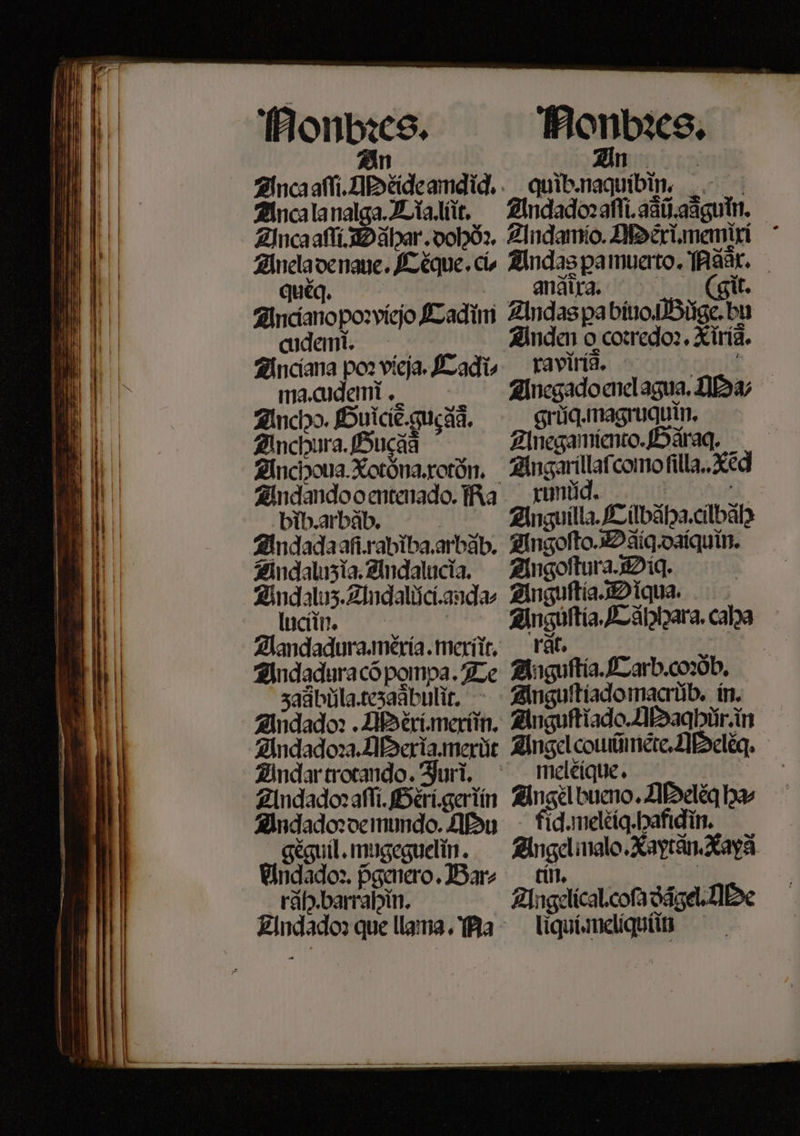 Nonbres.
An
Anca affi. Muéideamdid.
Anca la nalga. Lía. liít.
Anca affi. Dábar. oobór.
Ancla de naue. Léque. ci/
quéq.
Anciano por viejo Cadim
cudemi.
Anciana por vieja. Cadi/
ma. cudemi.
Ancho. Guicié. guçáá.
Anchura. Guçáá
Anchoua. Xotóna. xotón.
Andando o entenado. Ra
bib. arbáb.
Andada afi. rabiba. arbáb.
Andaluzia. Andalucia.
Andaluz. Andalúci. anda/
luciin.
Andadura. méría. meríit.
Andadura có pompa. Te
zaábúla. tezaábulit.
Andador. Méri. meríin.
Andadora. Mería. meriit
Andar trotando. Juri.
Andador affi. Géri. geriín
Andador de mundo. Mu
géguil. mugeguelin.
Andador. pgenero. Bar/
ráh. barrahin.
Andador que llama. Ra
Nonbres.
An
quib. naquibin.
Andador affi. aáú. aáguin.
Andamio. Méri. memiri
Andas pa muerto. Náár.
anáira. (git.
Andas pa biuo. Búge. bu
Anden o corredor. Xiriá.
raviriá.
Anegado en el agua. Ma/
grúq. magruquin.
Anegamiento. Gáraq.
Angarillas como silla. Xéd
xunúd.
Anguilla. Cilbába. cilbáb
Angosto. Dáiq. daiquin.
Angostura. Diq.
Angustia. Diqua.
Angustia. Cáhbara. caba
rát.
Angustia. Carb. corób.
Angustiado macrúb. in.
Angustiado. Maqhúr. in
Angel comúméte. Meléq.
meléique.
Angel bueno. Meléq ha/
fid. meléiq. hafidin.
Angel malo. Xaytán. Xayá
tin.
Angelical. cosa d ágel. Me
liquí. meliquiin